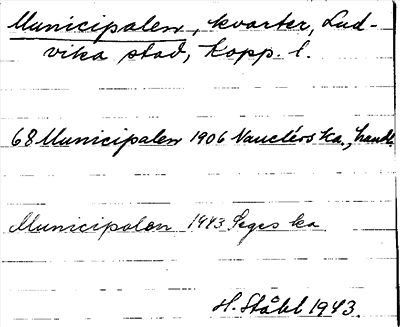 Municipalen, kvarter, Lud-
vika stad, Kopp. l.
68 Municipalen 1906 ka., handl.
Municipalen 1943 Seges ka
H. Ståhl 1943.